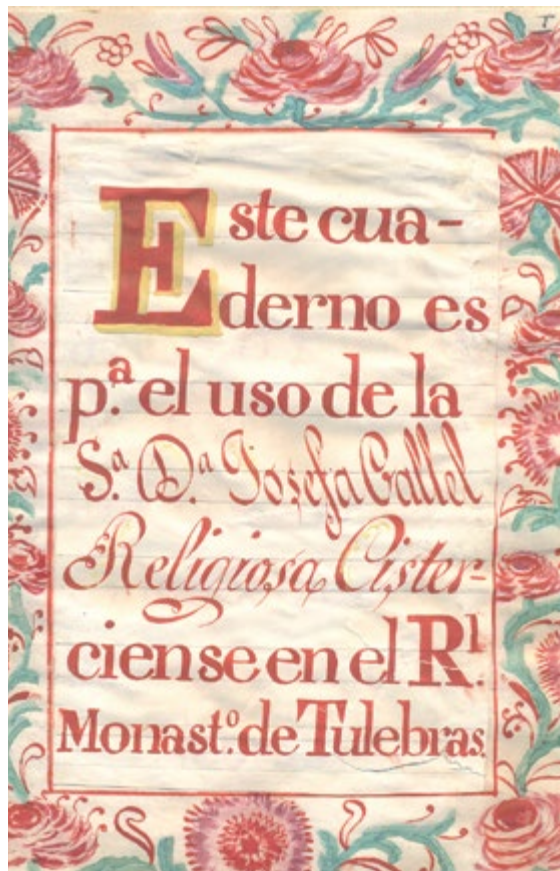 Este cua-
derno es
p.ª el uso de la
S.ª D.ª Josefa Gallel
Religiosa Cister-
ciense en el R.l
Monast.º de Tulebras.